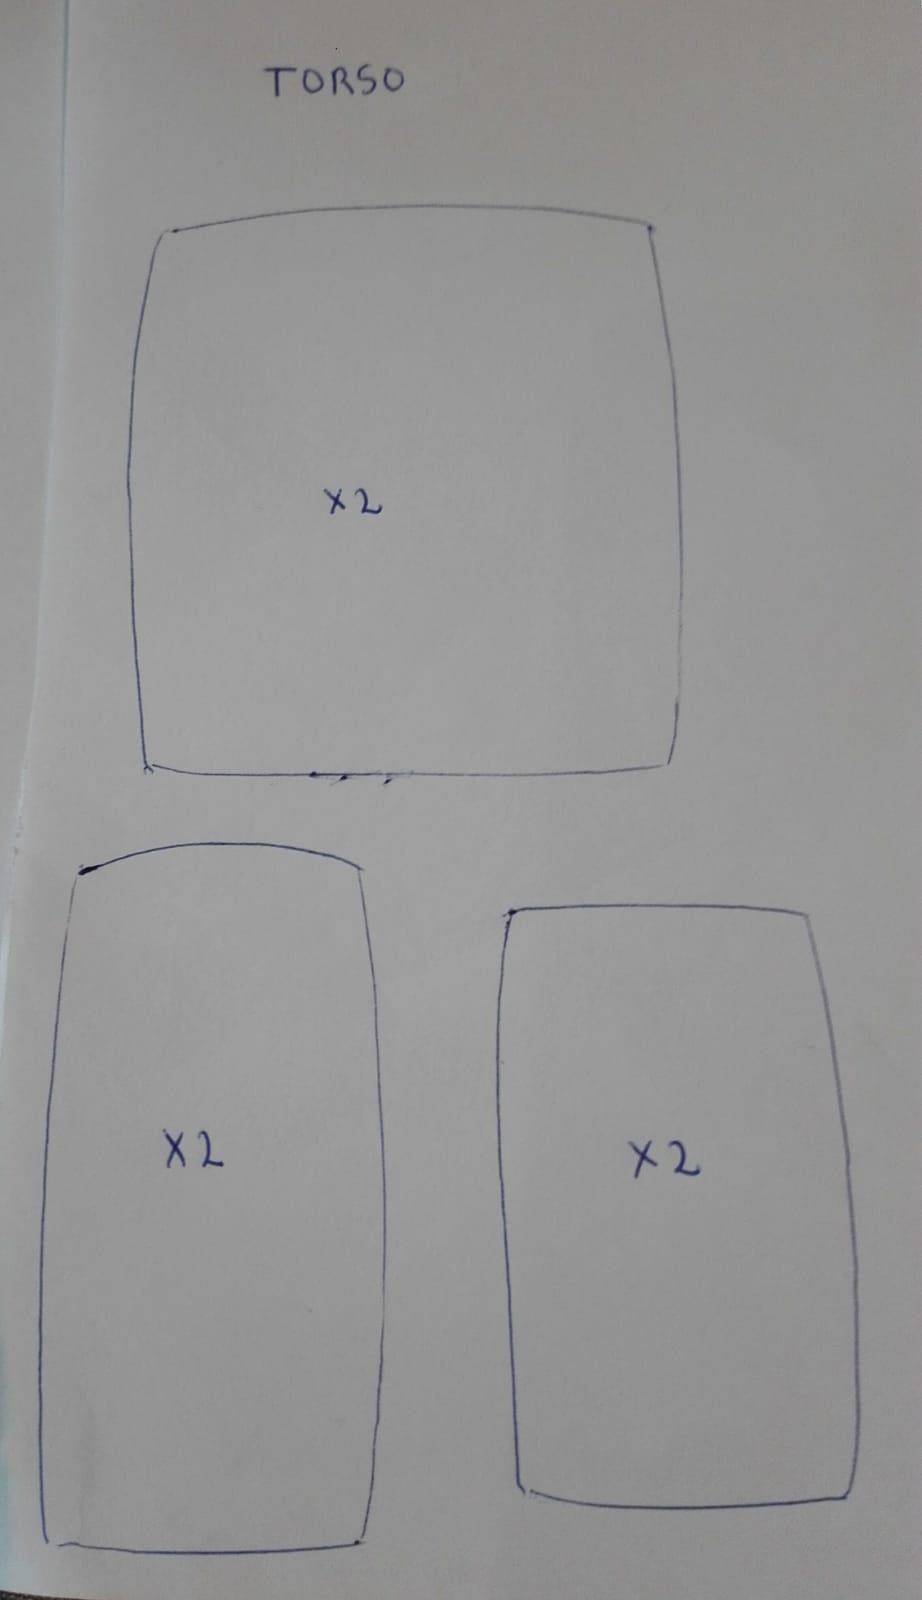 TORSO
X2
X2
X2